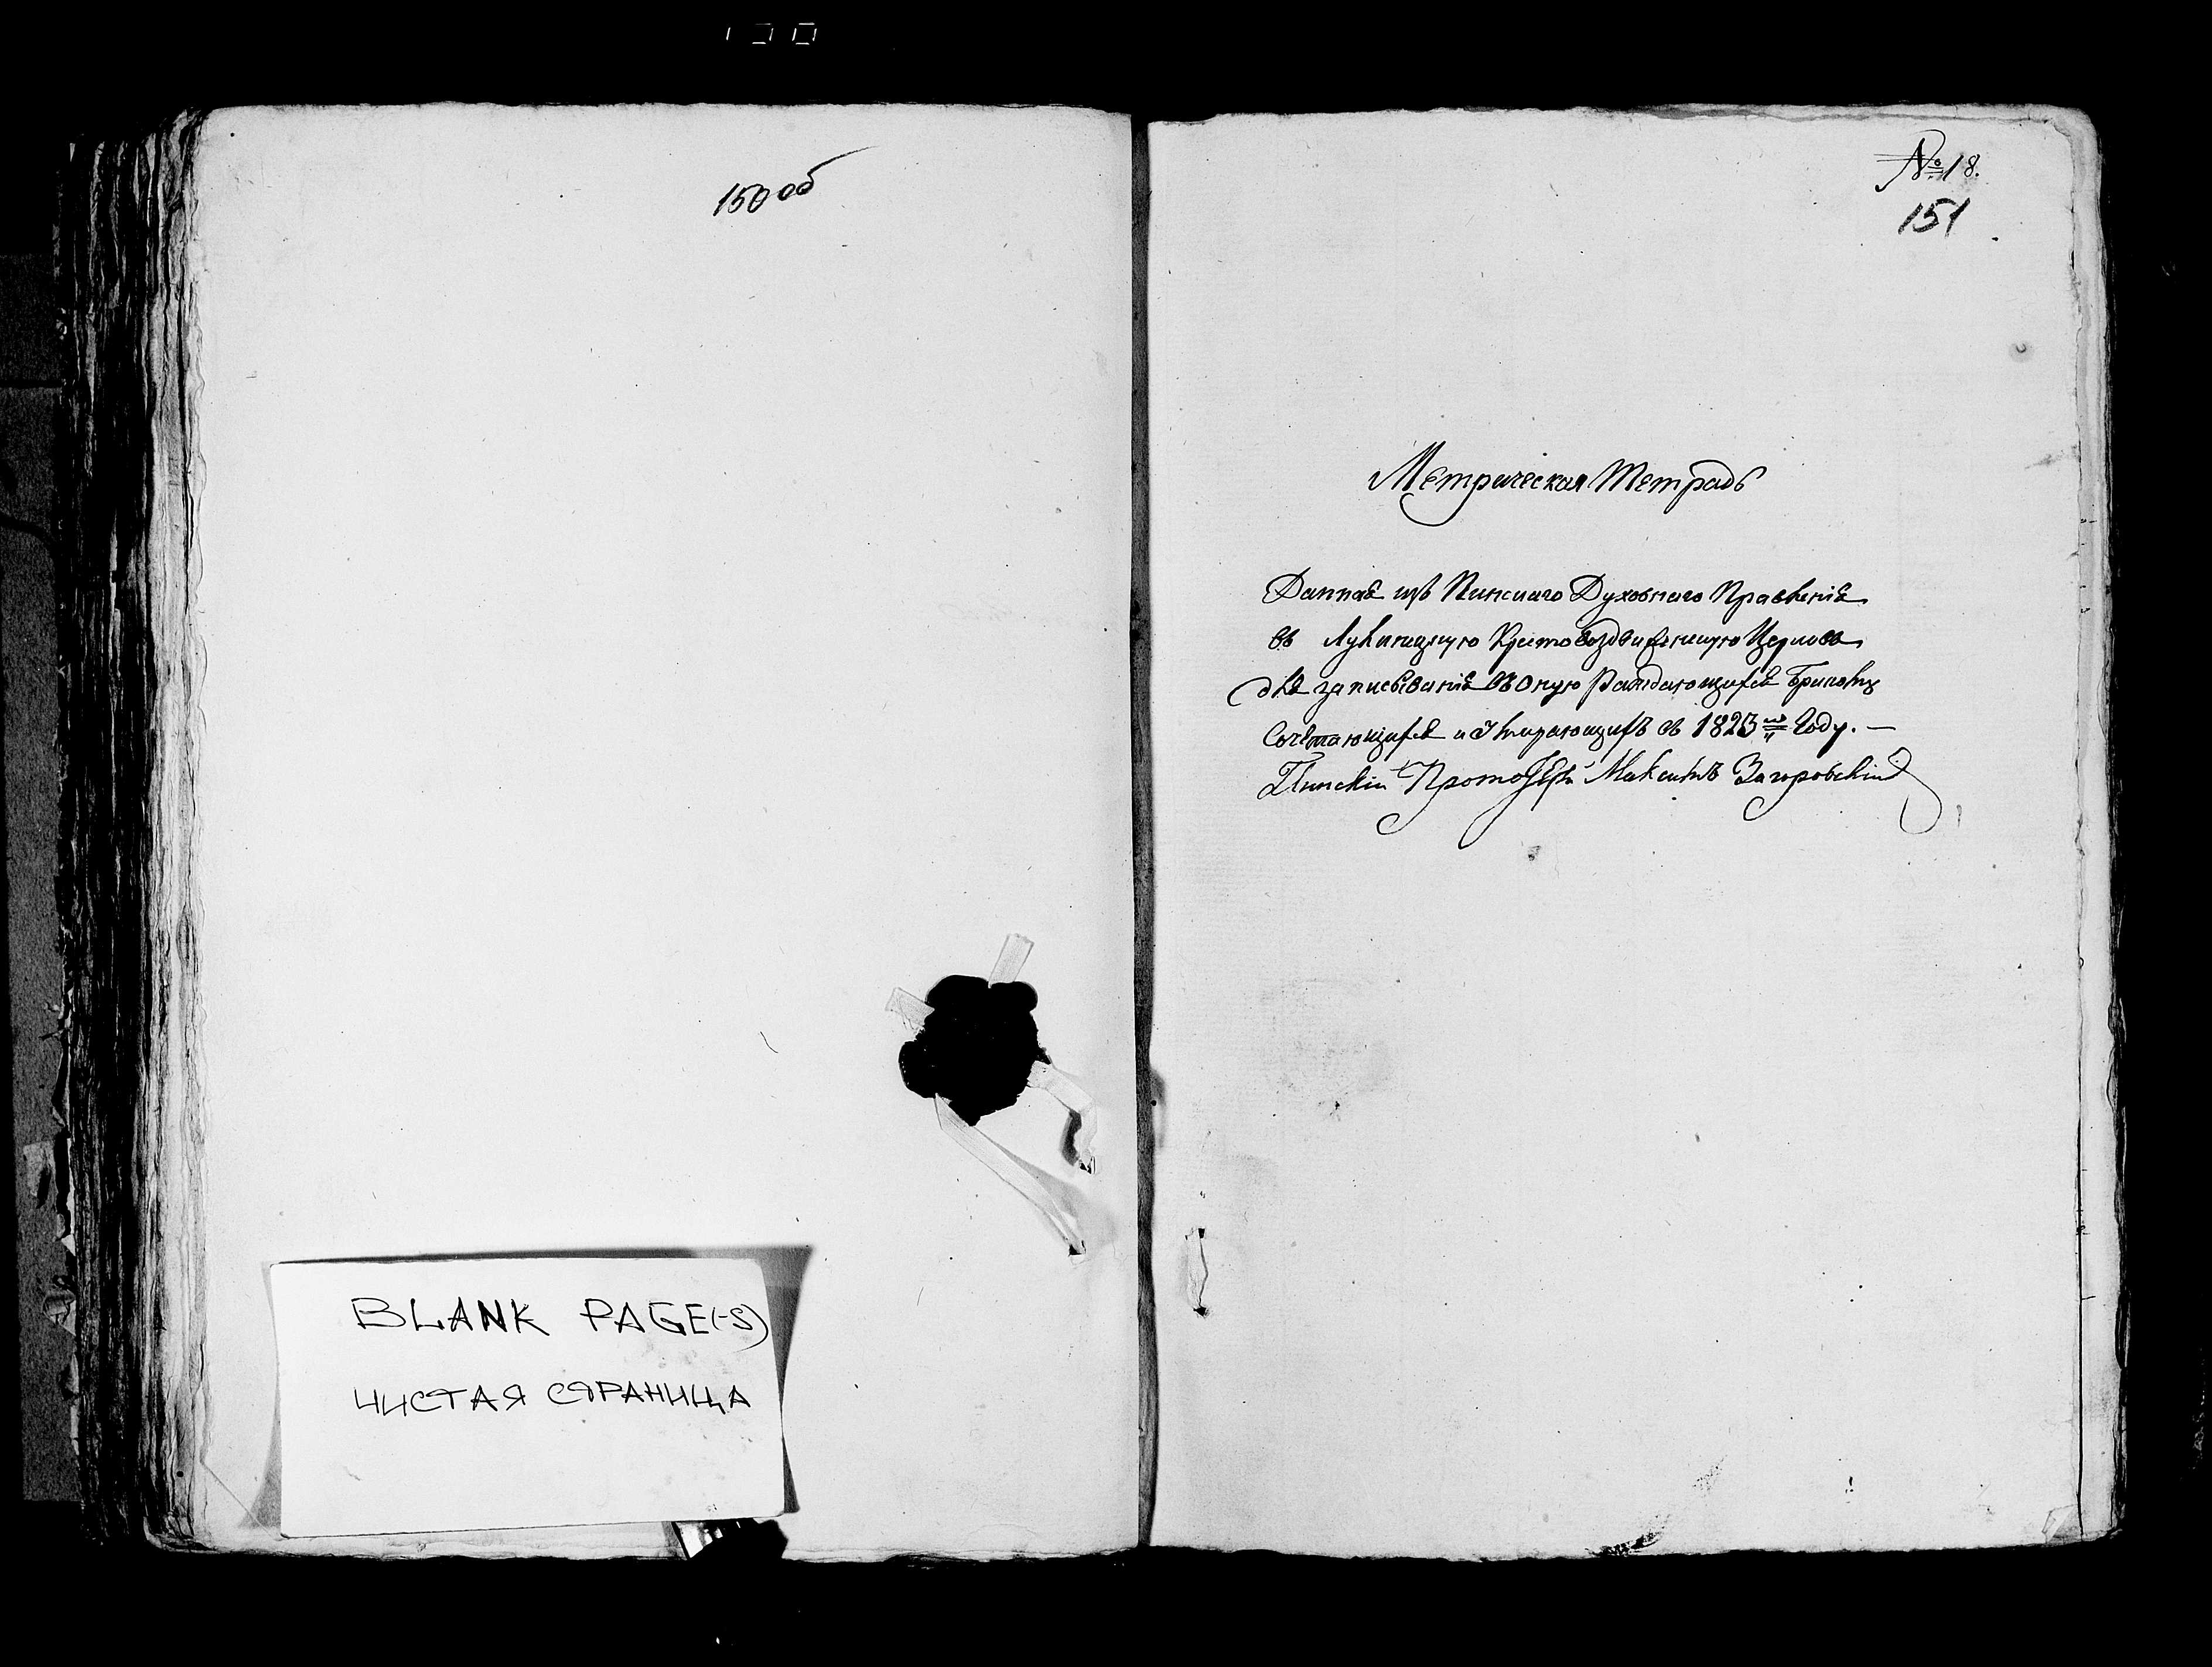 150 об
BLANK PAGE(-S)
ЧИСТАЯ СТРАНИЦА
№ 18.
151
Метрическая Тетрадь
Данная изъ Пинскаго Духовнаго Правленія
въ Крестовоздвиженскую Церковь
для записыванія въ оную Раждающихся Бракомъ
Сочетающихся и Умирающихъ въ 1823м Году. —
Пинскій Протоіерей Максимъ Загоровскій